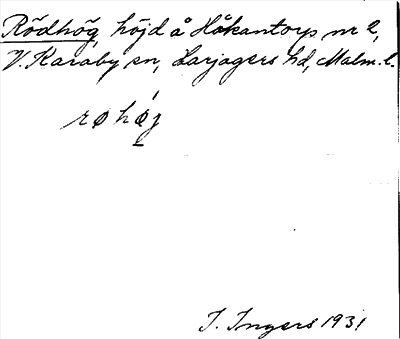 Rödhög, höjd å Håkantorps nr 2,
V. Karaby sn, Harjagers hd, Malm. l.
røhǿ̱j
I. Ingers 1931